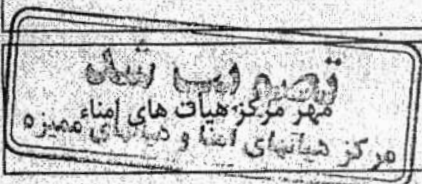 تصویب شد
مهر مرکز هیات های امناء
مرکز هیاتهای امنا و هیاتهای ممیزه